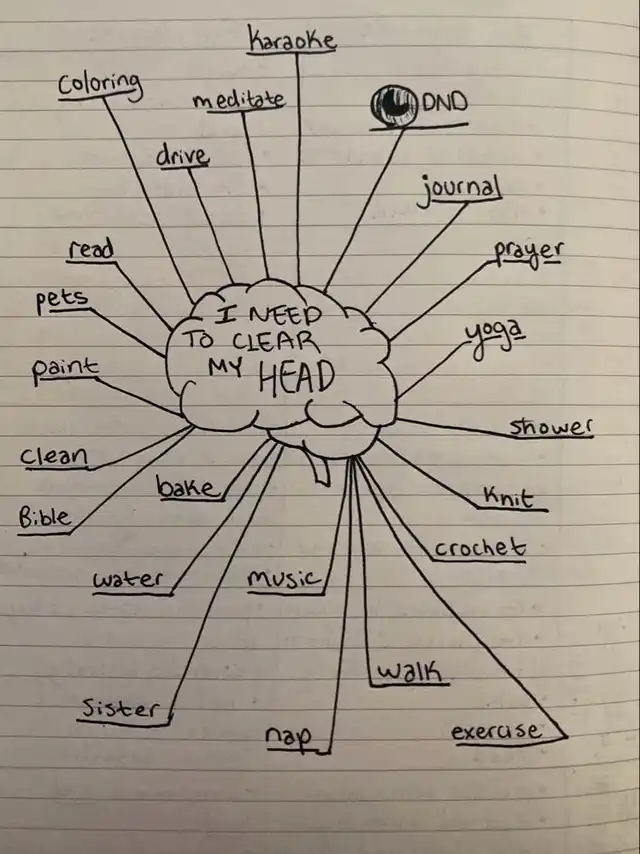 karaoke
coloring
meditate
DND
drive
journal
read
prayer
pets
I NEED
TO CLEAR
MY HEAD
yoga
paint
shower
clean
bake
Knit
Bible
crochet
water
music
walk
Sister
nap
exercise